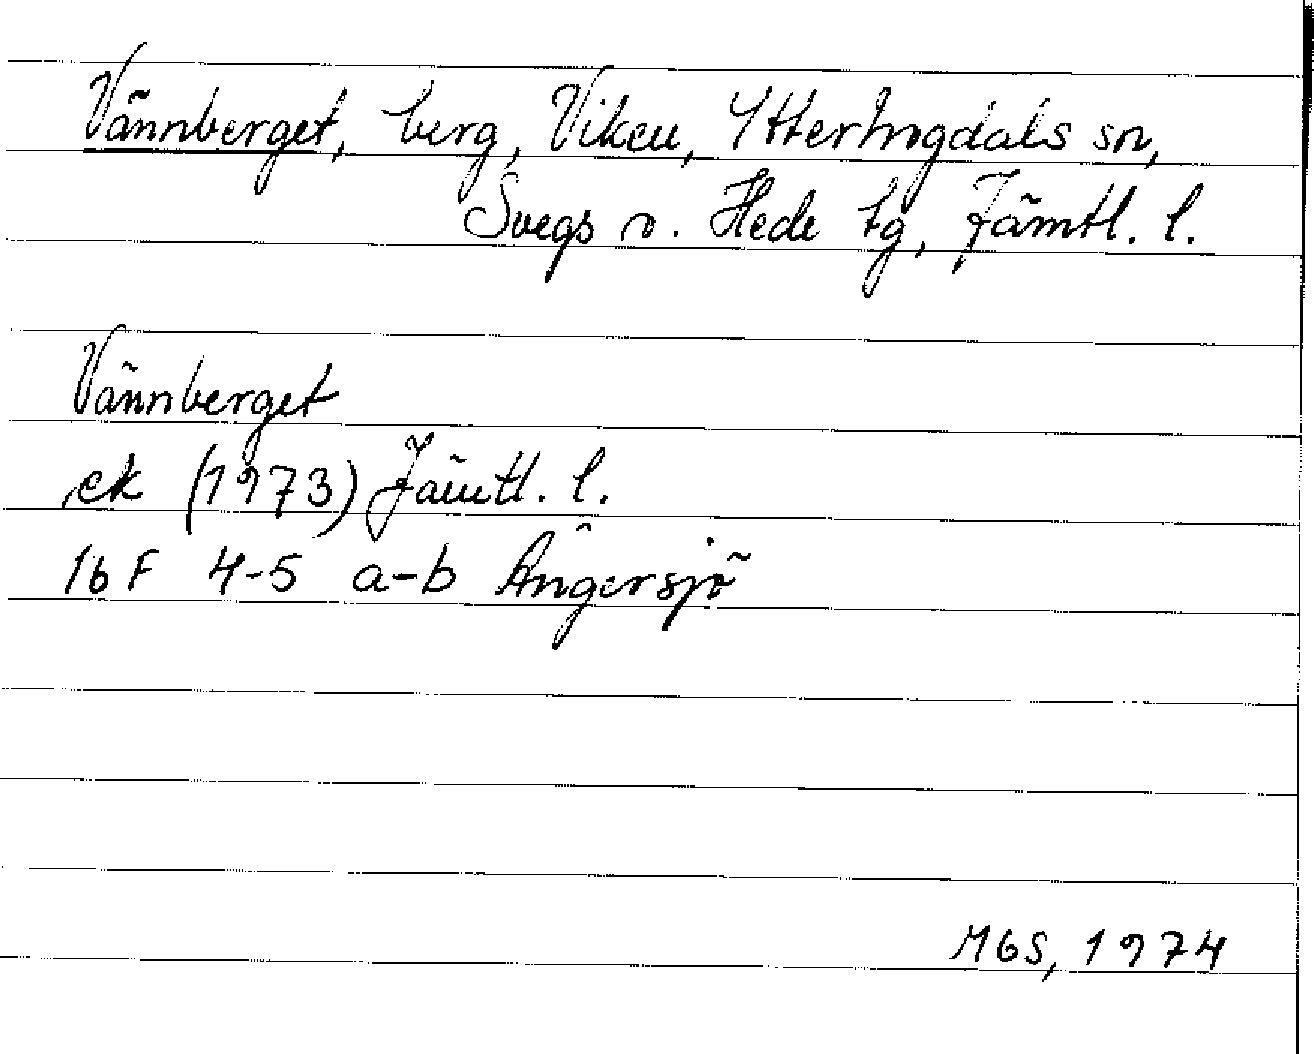 Vännberget, berg, Viken, Ytterhogdals sn,
Svegs o. Hede tg, Jämtl. l.
Vännberget
ek (1973) Jämtl. l.
16 F 4-5 a-b Ängersjö
MGS, 1974